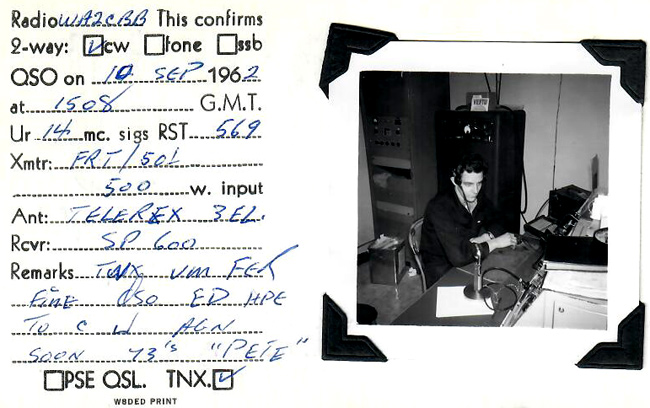 Radio WA2CBB This confirms
2-way: ☑cw ☐fone ☐ssb
QSO on 10 SEP 1962
at 1508 G.M.T.
Ur 14 mc. sigs RST 569
Xmtr: FRT/501
500 w. input
Ant: TELEREX 3EL.
Rcvr: SP 600
Remarks TNX VM FER
FINE QSO ED HPE
TO C U AGN
SOON 73's "PETE"
☐PSE QSL. TNX.☑
W8DED PRINT